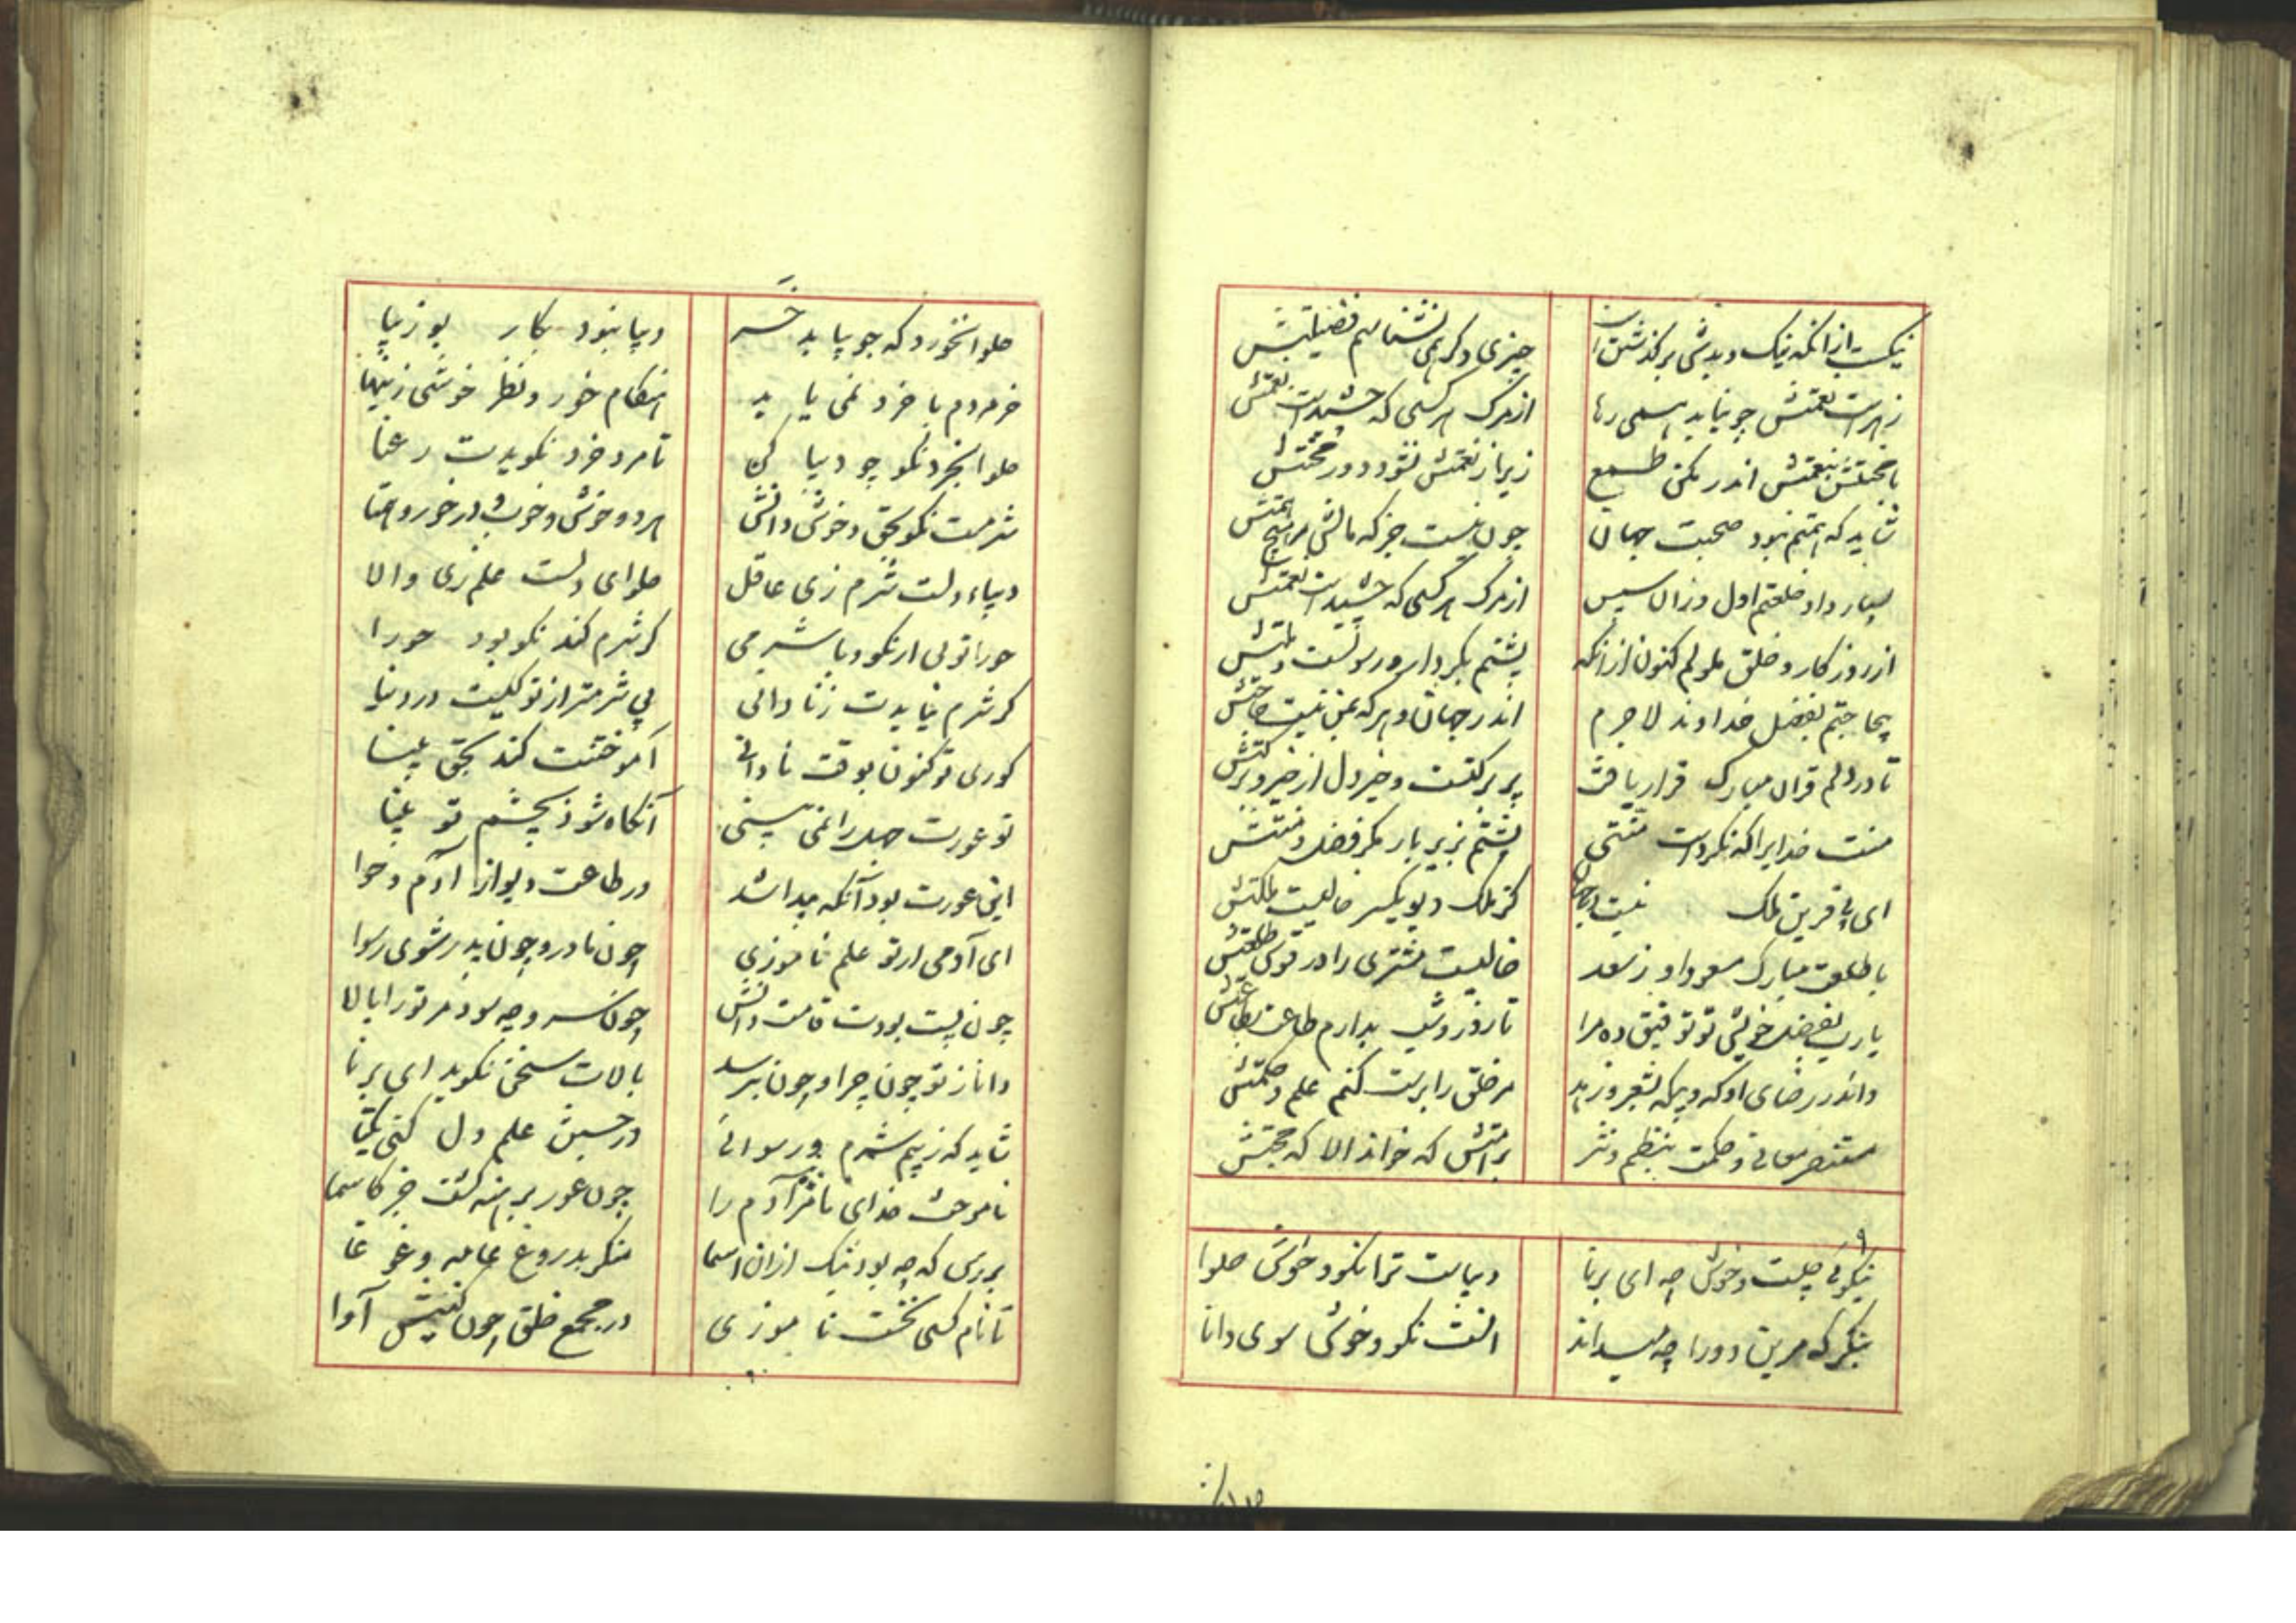 نیکست ازانکه نیک و بدش برگذشتن است چیزی دگر همی نشناسم فضیلتش
زهرست نعمتش چو نیابد همی رها از مرگ هر کسی که چشیدست نعمتش
با محنتش بنعمتش اندر مکن طمع زیرا ز نعمتش نشود دور محنتش
شاید که همتم نبود صحبت جهان چون نیست جز که مالش من هیچ همتش
بسیار داد خلعتم اول وزان سپس از مرگ هر کسی که چشیدست نعمتش
از روزگار و خلق ملولم کنون ازانکه پشتم بکردگار و رسولست و ملتش
بیحاجتم بفضل خداوند لاجرم اندر جهان و هر که بمن نیست حاجتش
تا در دلم قران مبارک قرار یافت پر برکتست و خیر دل از خیر و برکتش
منت خدایرا که نکردست منتی پشتم بزیر بار مگر فضل و منتش
ای بی قرین ملک نیست جهان کز ملک دیو یکسر خالیست ملکتش
با طلعت مبارک مسعود او ز سعد خالیست مشتری را در قوس طلعتش
یا رب بفضل خویش تو توفیق ده مرا تا روز و شب بدارم طاعت بطاعتش
واندر رضای او گه و بیگه بشعر زهد مر خلق را برشت کنم علم و حکمتش
مستنصر معانی و حکمت بنظم و نثر بر امتش که خواند الا که حجتش
۹
نیکوئی چیست و خوش چه ای برنا دیباست ترا نکو و خوش حلوا
بنگر که مرین دو را چه میداند آنست نکو و خوش سوی دانا
حلوا نخورد که جو بیابد خر دیبا نبود بکار بوزینا
خر مردم با خرد نمی یابد هنگام خور و نظر خوشی زینها
حلوا بخرد نکو چو دیبا کن تا مرد خرد نگویدت رعنا
شرمست نکو بحق و خوش دانش هر دو خوش و خوب و در خور و همتا
دیباء دلست شرم زی عاقل حلوای دلست علم زی والا
حورا توئی ار نکو و با شرمی گر شرم کند نکو بود حورا
گر شرم نیایدت ز نادانی بی شرمتر از تو کیست در دنیا
کوری تو کنون بوقت نادانی آموختنت کند بحق بینا
تو عورت جهل را نمی بینی آنگاه شود بچشم تو پیدا
این عورت بود آنکه پیدا شد در طاعت دیو از آدم و حوا
ای آدمی ار تو علم ناموزی چون مادر و چون پدر شوی رسوا
چون پست بودت قامت دانش چون سرو چه سود مر تو را بالا
دانا ز تو چون چرا و چون پرسد بالات سخن نگوید ای برنا
شاید که ز بیم شرم و رسوائی در جستن علم دل کنی یکتا
ناموخت خدای ما مر آدم را چون عور برهنه گشت جز کاسما
بررس که چه بود نیک ازان اسما منگر بدروغ عامه و غوغا
تا نام کسی نخست ناموزی در مجمع خلق چون کنیش آوا